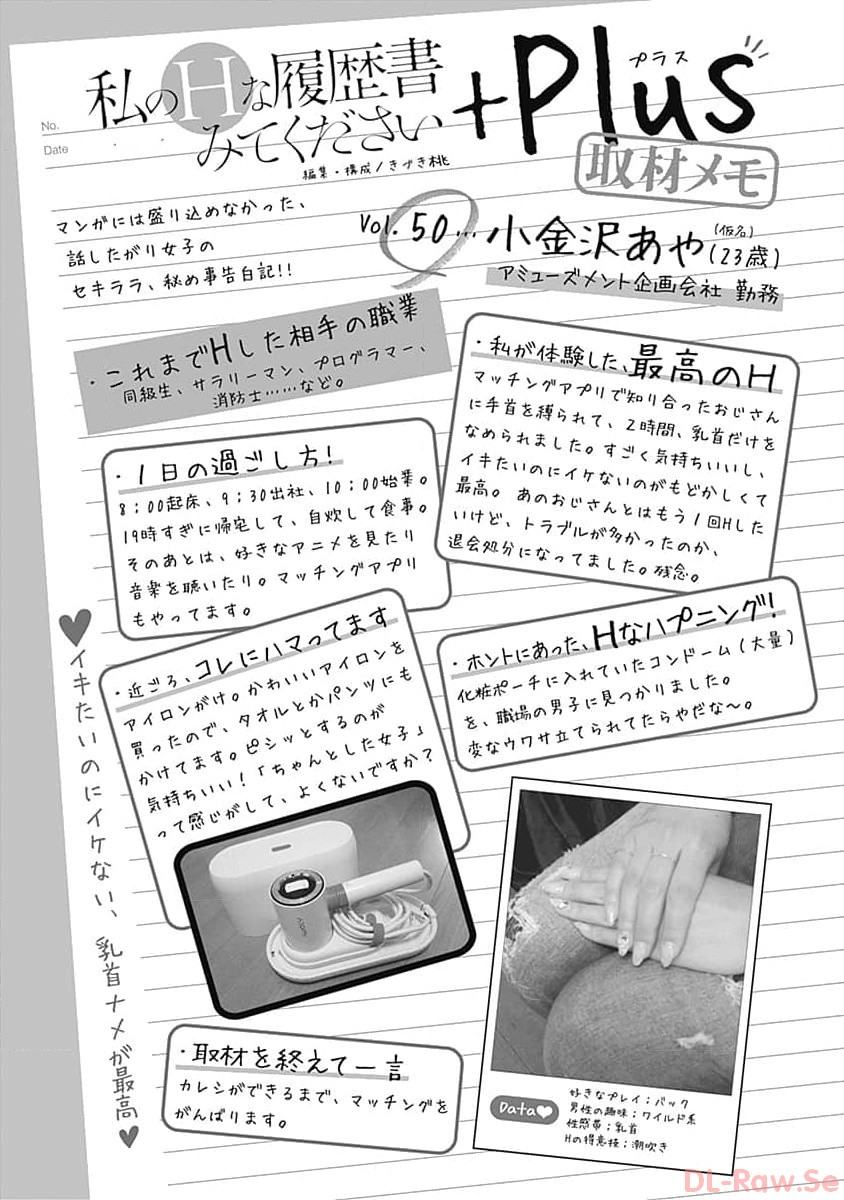 No.
Date
私のHな履歴書
みてください
+Plus
プラス
編集・構成/きづき桃
取材メモ
マンガには盛り込めなかった、
話したがり女子の
セキララ、秘め事告白記!!
Vol.50… 小金沢あや(仮名)(23歳)
アミューズメント企画会社 勤務
・これまでHした相手の職業
同級生、サラリーマン、プログラマー、
消防士……など。
・私が体験した、最高のH
マッチングアプリで知り合ったおじさん
に手首を縛られて、2時間、乳首だけを
なめられました。すごく気持ちいいし、
イキたいのにイケないのがもどかしくて
最高。あのおじさんとはもう1回Hした
いけど、トラブルが多かったのか、
退会処分になってました。残念。
・1日の過ごし方!
8:00起床、9:30出社、10:00始業。
19時すぎに帰宅して、自炊して食事。
そのあとは、好きなアニメを見たり
音楽を聴いたり。マッチングアプリ
もやってます。
・近ごろ、コレにハマってます
アイロンがけ。かわいいアイロンを
買ったので、タオルとかパンツにも
かけてます。ピシッとするのが
気持ちいい!「ちゃんとした女子」
って感じがして、よくないですか?
・ホントにあった、Hなハプニング!
化粧ポーチに入れていたコンドーム(大量)
を、職場の男子に見つかりました。
変なウワサ立てられてたらやだな〜。
♥イキたいのにイケない、乳首ナメが最高♥
・取材を終えて一言
カレシができるまで、マッチングを
がんばります。
Data♥
好きなプレイ;バック
男性の趣味;ワイルド系
性感帯;乳首
Hの得意技;潮吹き
DL-Raw.Se